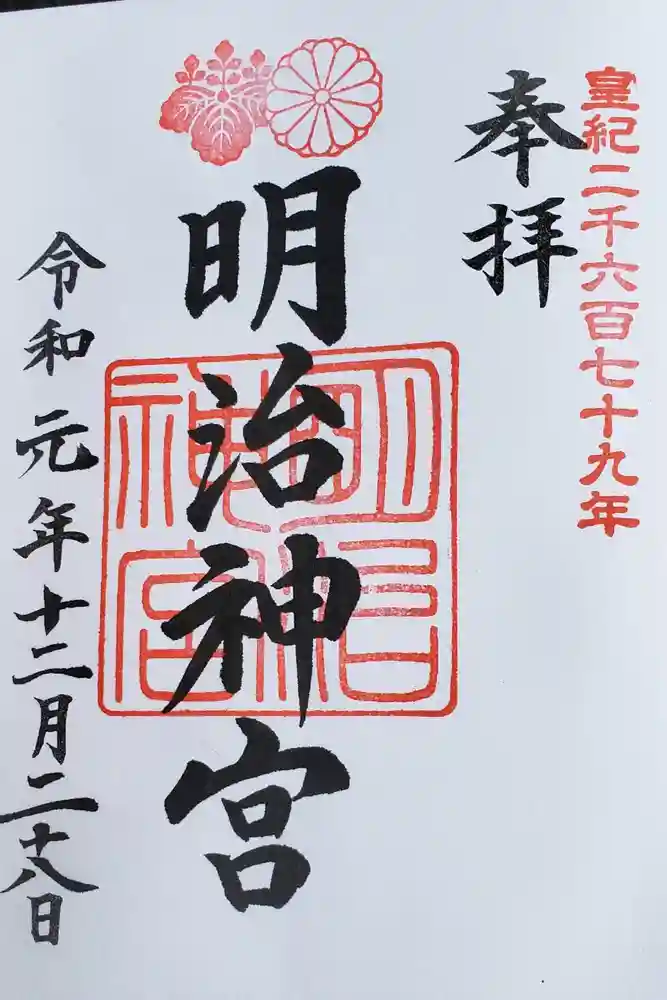 皇紀二千六百七十九年
奉拝
明治神宮
明治神宮
令和元年十二月二十八日